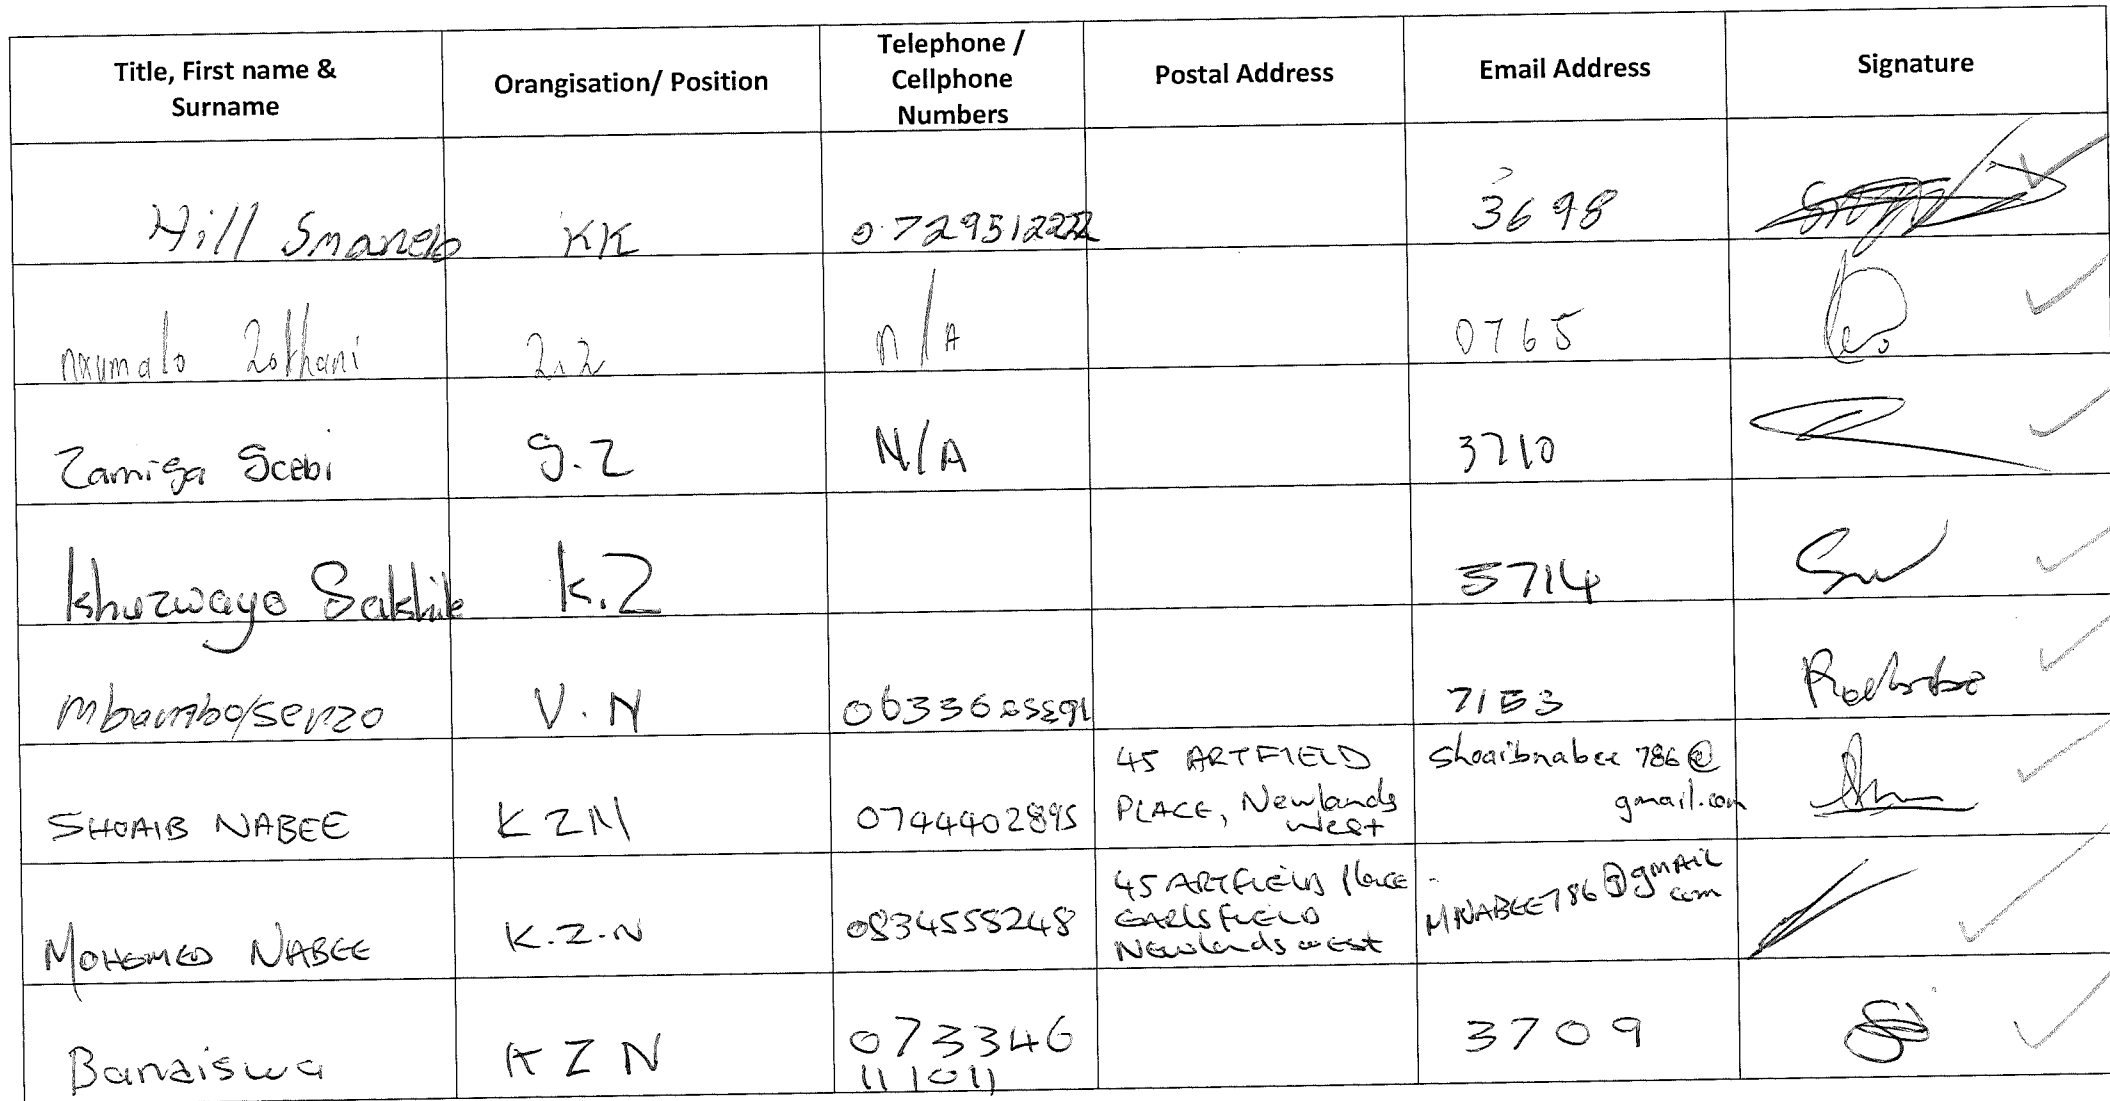 Title, First name &
Surname
Orangisation/ Position
Telephone /
Cellphone
Numbers
Postal Address
Email Address
Signature
Hill
KK
3698
nxumalo
n/A
0765
Zamisa Scebi
S.Z
N/A
3710
khuzwayo Sakhile
K.Z
3714
mbambo/senzo
V.N
7153
SHOAIB NABEE
KZN
0744402895
45 ARTFIELD
PLACE, Newlands
west
Shoaibnabee786@
gmail.com
MOHAMED NABEE
K.Z.N
0834558248
45 ARTFIELD Place
EARLSFIELD
Newlands west
MNABEE786@gmail
com
KZN
073346
3709